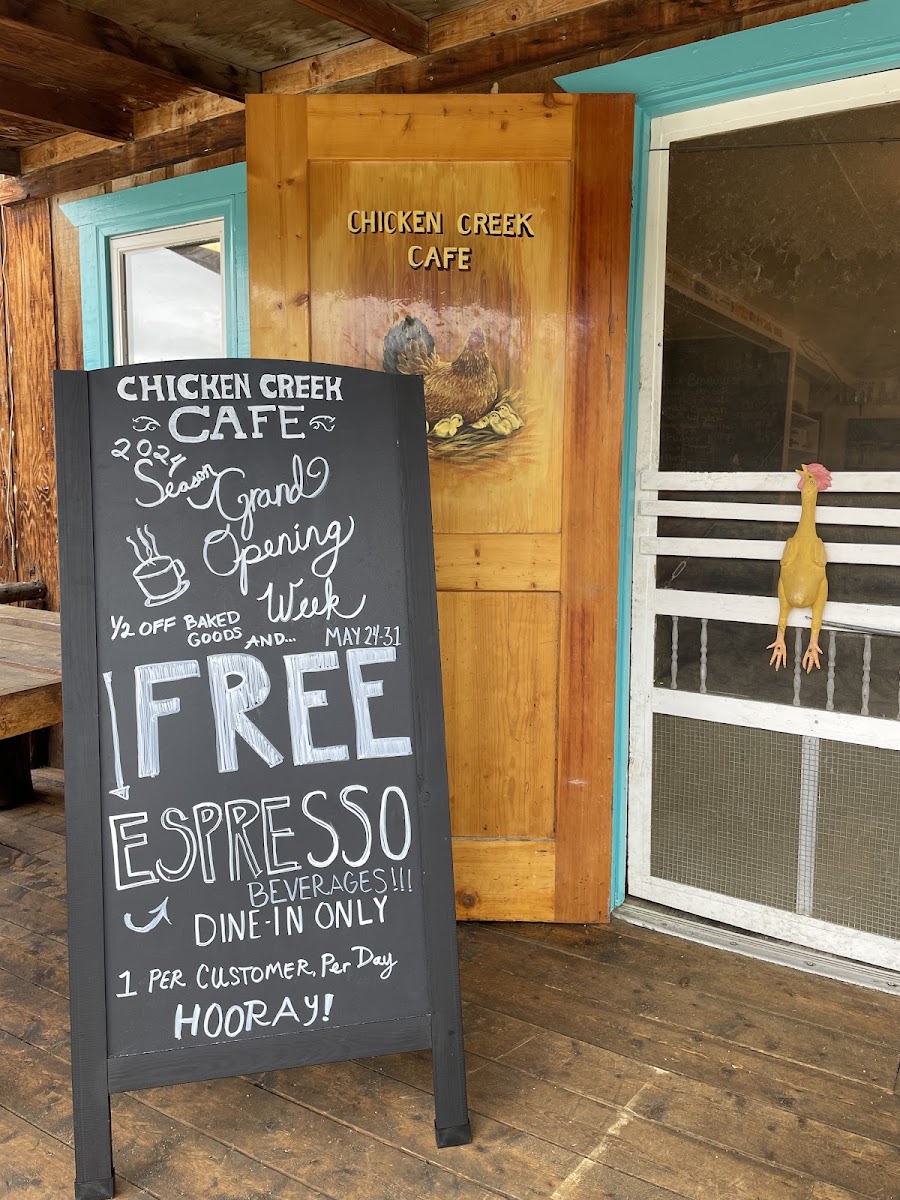 CHICKEN CREEK
CAFE
CHICKEN CREEK
CAFE
2024
Season Grand
Opening
Week
1/2 OFF BAKED
GOODS AND...
MAY 24-31
FREE
ESPRESSO
BEVERAGES!!!
DINE-IN ONLY
1 PER CUSTOMER, Per Day
HOORAY!